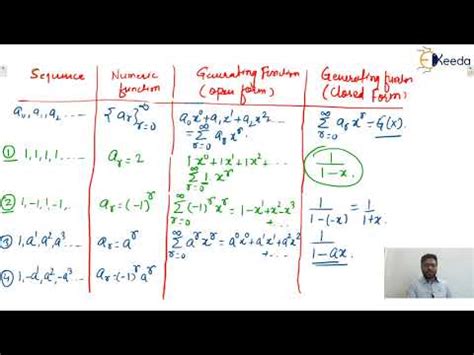 Ekeeda
Sequence Numeric function Generating Function (open form) Generating function (Closed Form)
a₀, a₁, a₂ .... {aᵣ}^∞ᵣ₌₀ a₀x⁰+a₁x¹+a₂x².... = ∑^∞ᵣ₌₀ aᵣxʳ ∑^∞ᵣ₌₀ aᵣxʳ = G(x).
① 1, 1, 1, 1, .... aᵣ = 2 1x⁰+1x¹+1x²... ∑^∞ᵣ₌₀ 1xʳ 1/(1-x).
② 1, -1, 1, -1, .. aᵣ=(-1)ʳ ∑^∞ᵣ₌₀ (-1)ʳxʳ = 1-x¹+x²-x³ +... 1/(1-(-x)) = 1/(1+x).
③ 1, a¹, a², a³.... aᵣ=aʳ ∑^∞ᵣ₌₀ aʳxʳ = a⁰x⁰+a¹x¹+a²x² +... 1/(1-ax).
④ 1, -a¹, a², -a³... aᵣ=(-1)ʳaʳ